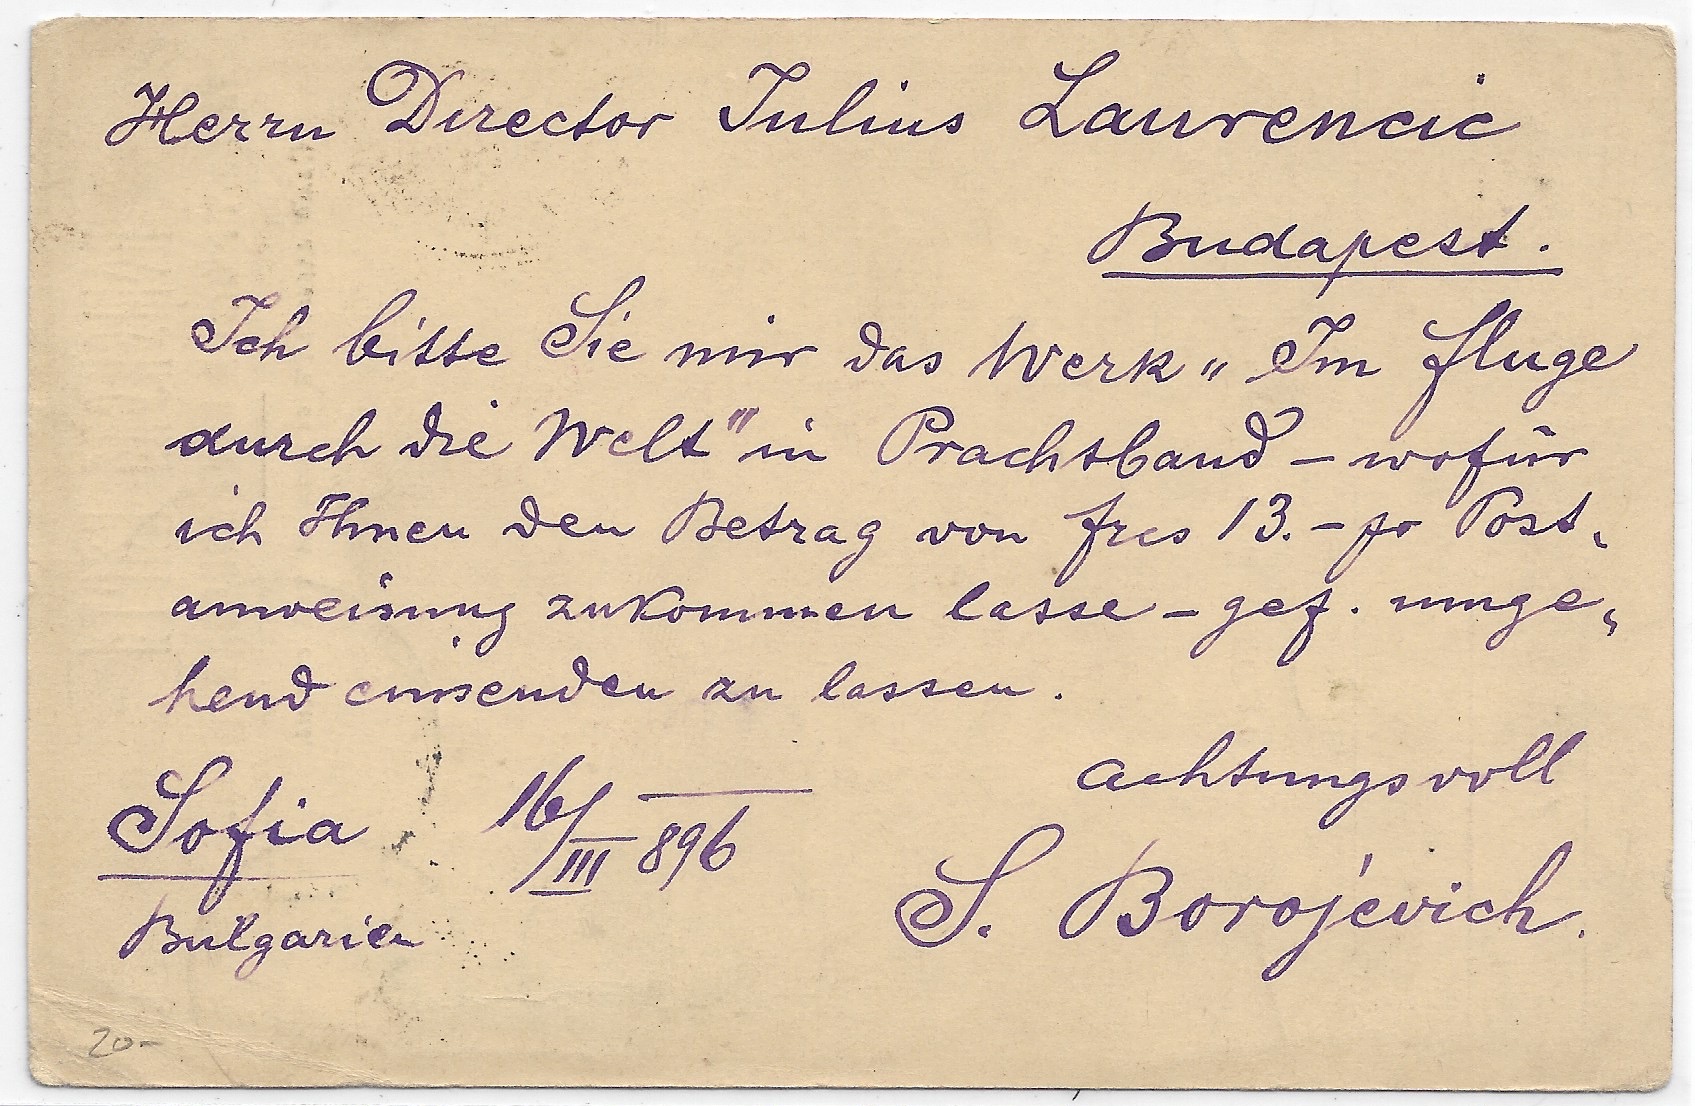 Herrn Director Julius Laurencic
Budapest.
Ich bitte Sie mir das Werk „Im fluge
durch die Welt" in Prachtband – wofür
ich Ihnen den Betrag von frcs 13.– pr Post-
anweisung zukommen lasse – gef. umge-
hend einsenden zu lassen.
achtungsvoll
Sofia 16/III 896
S. Borojevich.
Bulgarien
20-